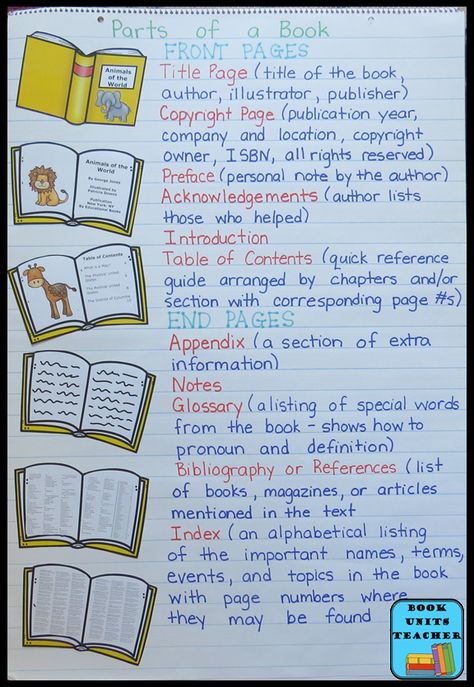 Parts of a Book
FRONT PAGES
Title Page (title of the book,
author, illustrator, publisher)
Copyright Page (publication year,
company and location, copyright
owner, ISBN, all rights reserved)
Preface (personal note by the author)
Acknowledgements (author lists
those who helped)
Introduction
Table of Contents (quick reference
guide arranged by chapters and/or
section with corresponding page #s)
END PAGES
Appendix (a section of extra
information)
Notes
Glossary (a listing of special words
from the book - shows how to
pronoun and definition)
Bibliography or References (list
of books, magazines, or articles
mentioned in the text
Index (an alphabetical listing
of the important names, terms,
events, and topics in the book
with page numbers where
they may be found
Animals
of the
World
Animals of the
World
By George Jones
Illustrated by
Patricia Downs
Publication
New York, NY
By Educational Books
Table of Contents
What is a Map?
The Political United
States
The Physical United
States
The District of Columbia
BOOK
UNITS
TEACHER